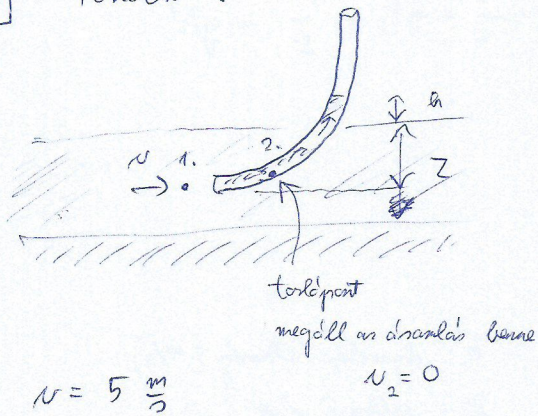 v 1.
2.
h
Z
torlópont
megáll az áramlás benne
v = 5 m/s
v₂ = 0